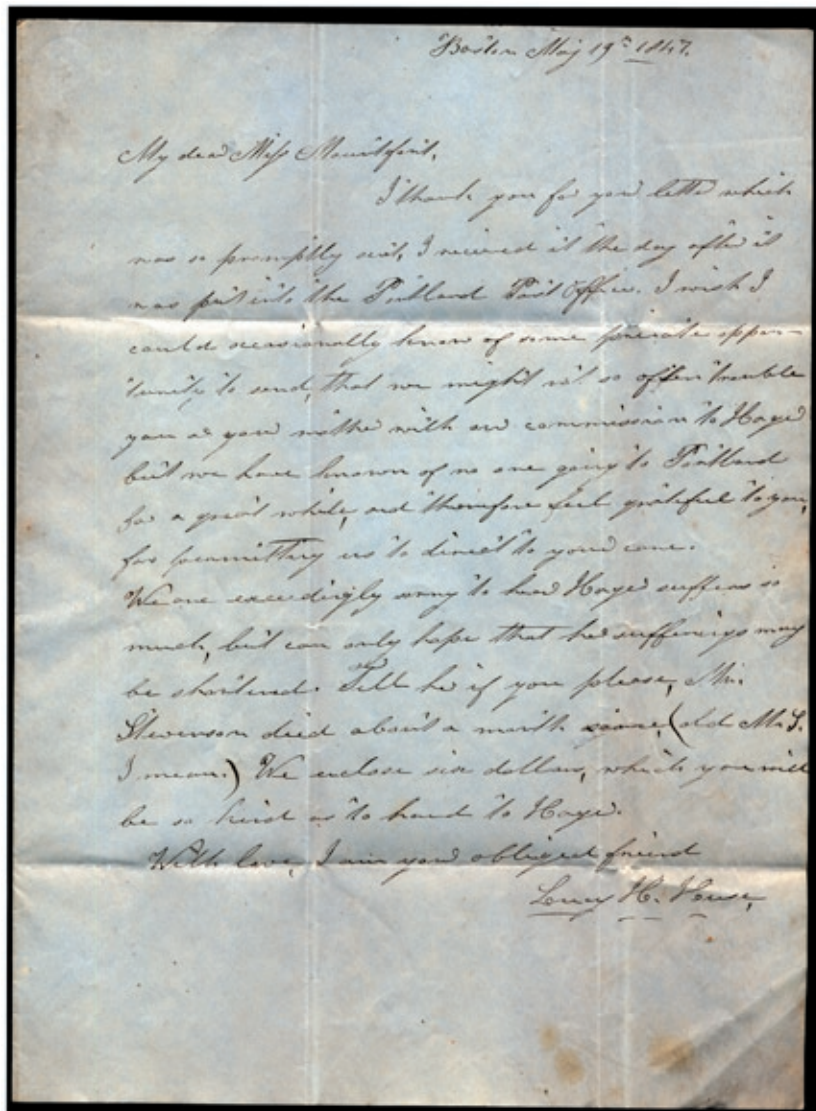 Boston May 19th 1847.
My dear Miss Mountfort,
I thank you for your letter which
was so promptly sent, I received it the day after it
was put into the Portland Post Office. I wish I
could occasionally know of some private oppor-
tunity to send, that we might not so often trouble
you or your mother with our commission to Hayes
but we have known of no one going to Portland
for a great while, and therefore feel grateful to you,
for permitting us to direct to your care.
We are exceedingly sorry to hear Hayes suffers so
much, but can only hope that her sufferings may
be shortened. Tell her if you please, Mr.
Stevenson died about a month since, (old Mr. S.
I mean.) We enclose six dollars, which you will
be so kind as to hand to Hayes.
With love, I am your obliged friend
Lucy H.